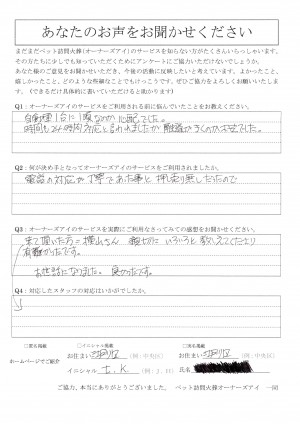 あなたのお声をお聞かせください
まだまだペット訪問火葬(オーナーズアイ)のサービスを知らない方がたくさんいらっしゃいます。
その方たちに少しでも知っていただくためにアンケートにご協力いただけないでしょうか。
あなた様のご意見をお聞かせいただき、今後の活動に反映したいと考えています。よかったこと、
嬉しかったこと、どのような些細なことでもけっこうです。ぜひご協力をよろしくお願いいたします。
(できるだけ具体的に書いていただけると助かります)
Q1:オーナーズアイのサービスをご利用される前に悩んでいたことを教えてください。
心配でした。
時間も24時間対応と言われましたが
Q2:何が決め手となってオーナーズアイのサービスをご利用されましたか。
電話の対応が丁寧であった事と押売り無しだったので
Q3:オーナーズアイのサービスを実際にご利用なさってみての感想をお聞かせください。
来て頂いた方=横山さん 親切に いろいろと教えてくださり
有難かったです。
お世話になりました。良かったです。
Q4:対応したスタッフの対応はいかがでしたか。
□匿名掲載 □イニシャル掲載 □実名掲載
ホームページでご紹介
お住まい (例:中央区) お住まい (例:中央区)
イニシャル T.K (例:J.H) 氏名
ご協力、本当にありがとうございました。 ペット訪問火葬オーナーズアイ 一同